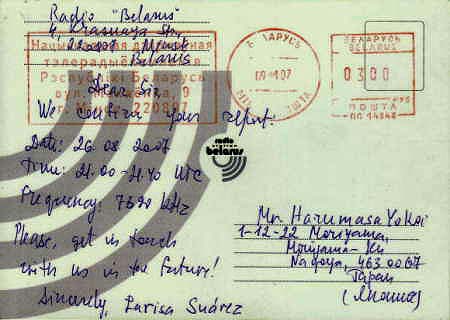 Radio "Belarus"
4, Krasnaya Str.,
Minsk
Belarus
Нацыянальная дзяржаўная
тэлерадыё
Рэспублікі Беларусь
вул. Макаёнка, 9
г. Мінск, 220807
БЕЛАРУСЬ
ПОШТА
БЕЛАРУСЬ
BELARUS
0300
ПОШТА
Dear Sir,
We confirm your report:
Date: 26.08.2007
Time: 21.00-21.40 UTC
Frequency: 7390 kHz
Please, get in touch
with us in the future!
Sincerely, Larisa Suárez
radio
belarus
Mr. Harumasa Yokoi
1-12-22 Moriyama,
Moriyama-Ku
Nagoya, 463 0007
Japan
(Япония)